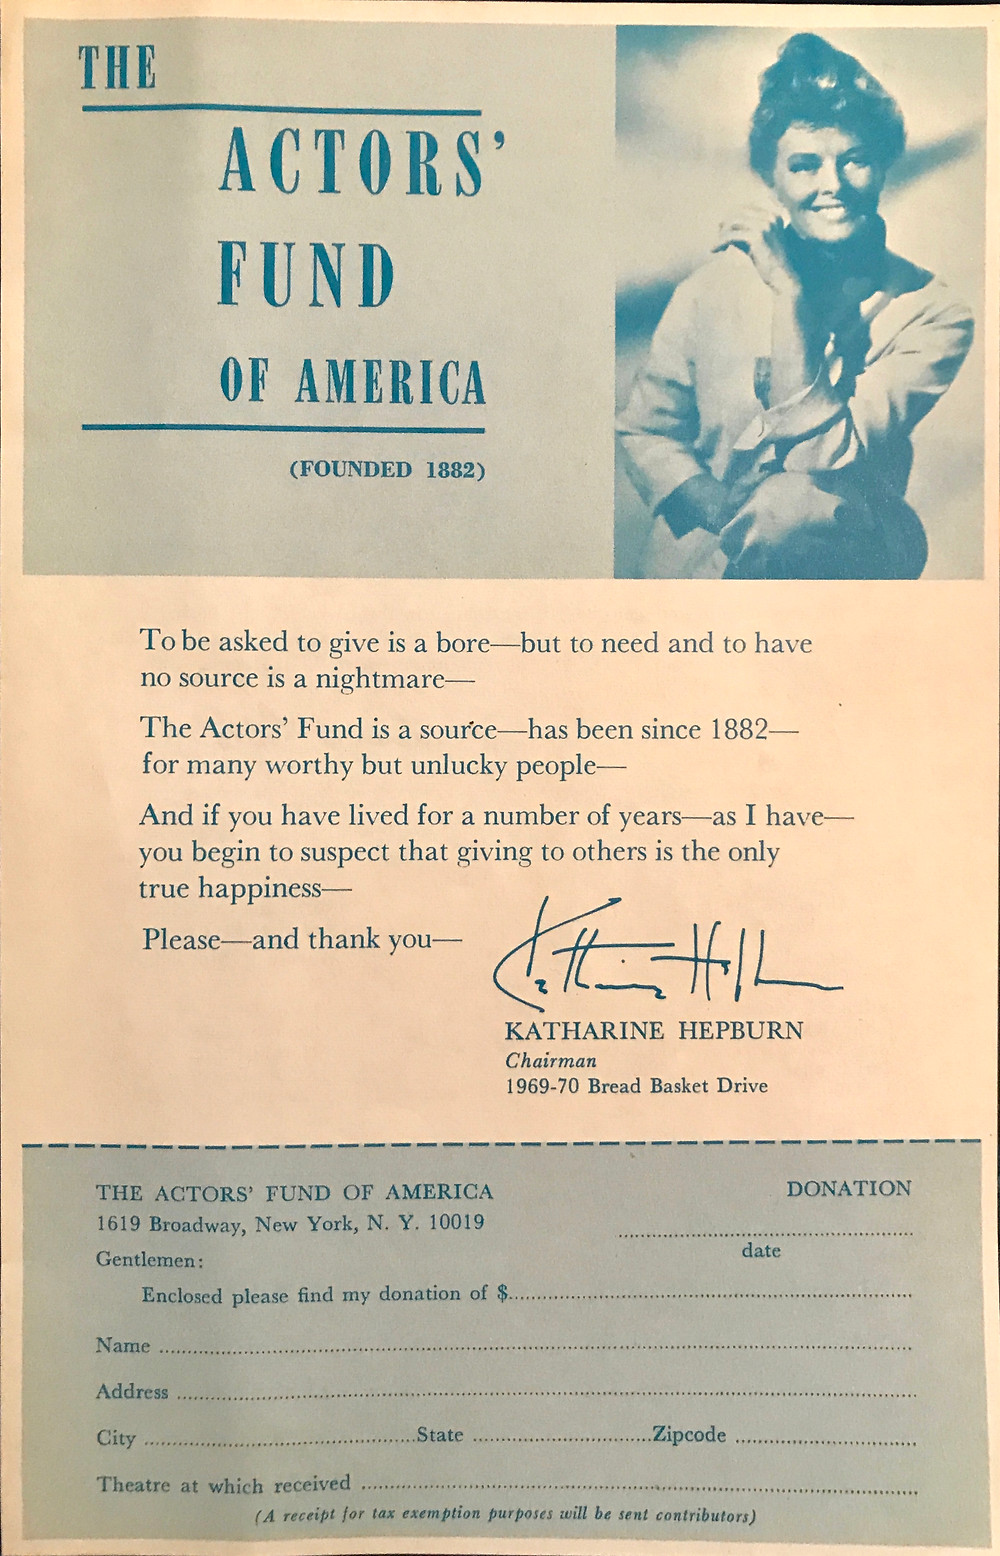 THE
ACTORS'
FUND
OF AMERICA
(FOUNDED 1882)
To be asked to give is a bore—but to need and to have
no source is a nightmare—
The Actors' Fund is a source—has been since 1882—
for many worthy but unlucky people—
And if you have lived for a number of years—as I have—
you begin to suspect that giving to others is the only
true happiness—
Please—and thank you—
Katharine Hepburn
KATHARINE HEPBURN
Chairman
1969-70 Bread Basket Drive
THE ACTORS' FUND OF AMERICA
1619 Broadway, New York, N. Y. 10019
DONATION
date
Gentlemen:
Enclosed please find my donation of $
Name
Address
City State Zipcode
Theatre at which received
(A receipt for tax exemption purposes will be sent contributors)